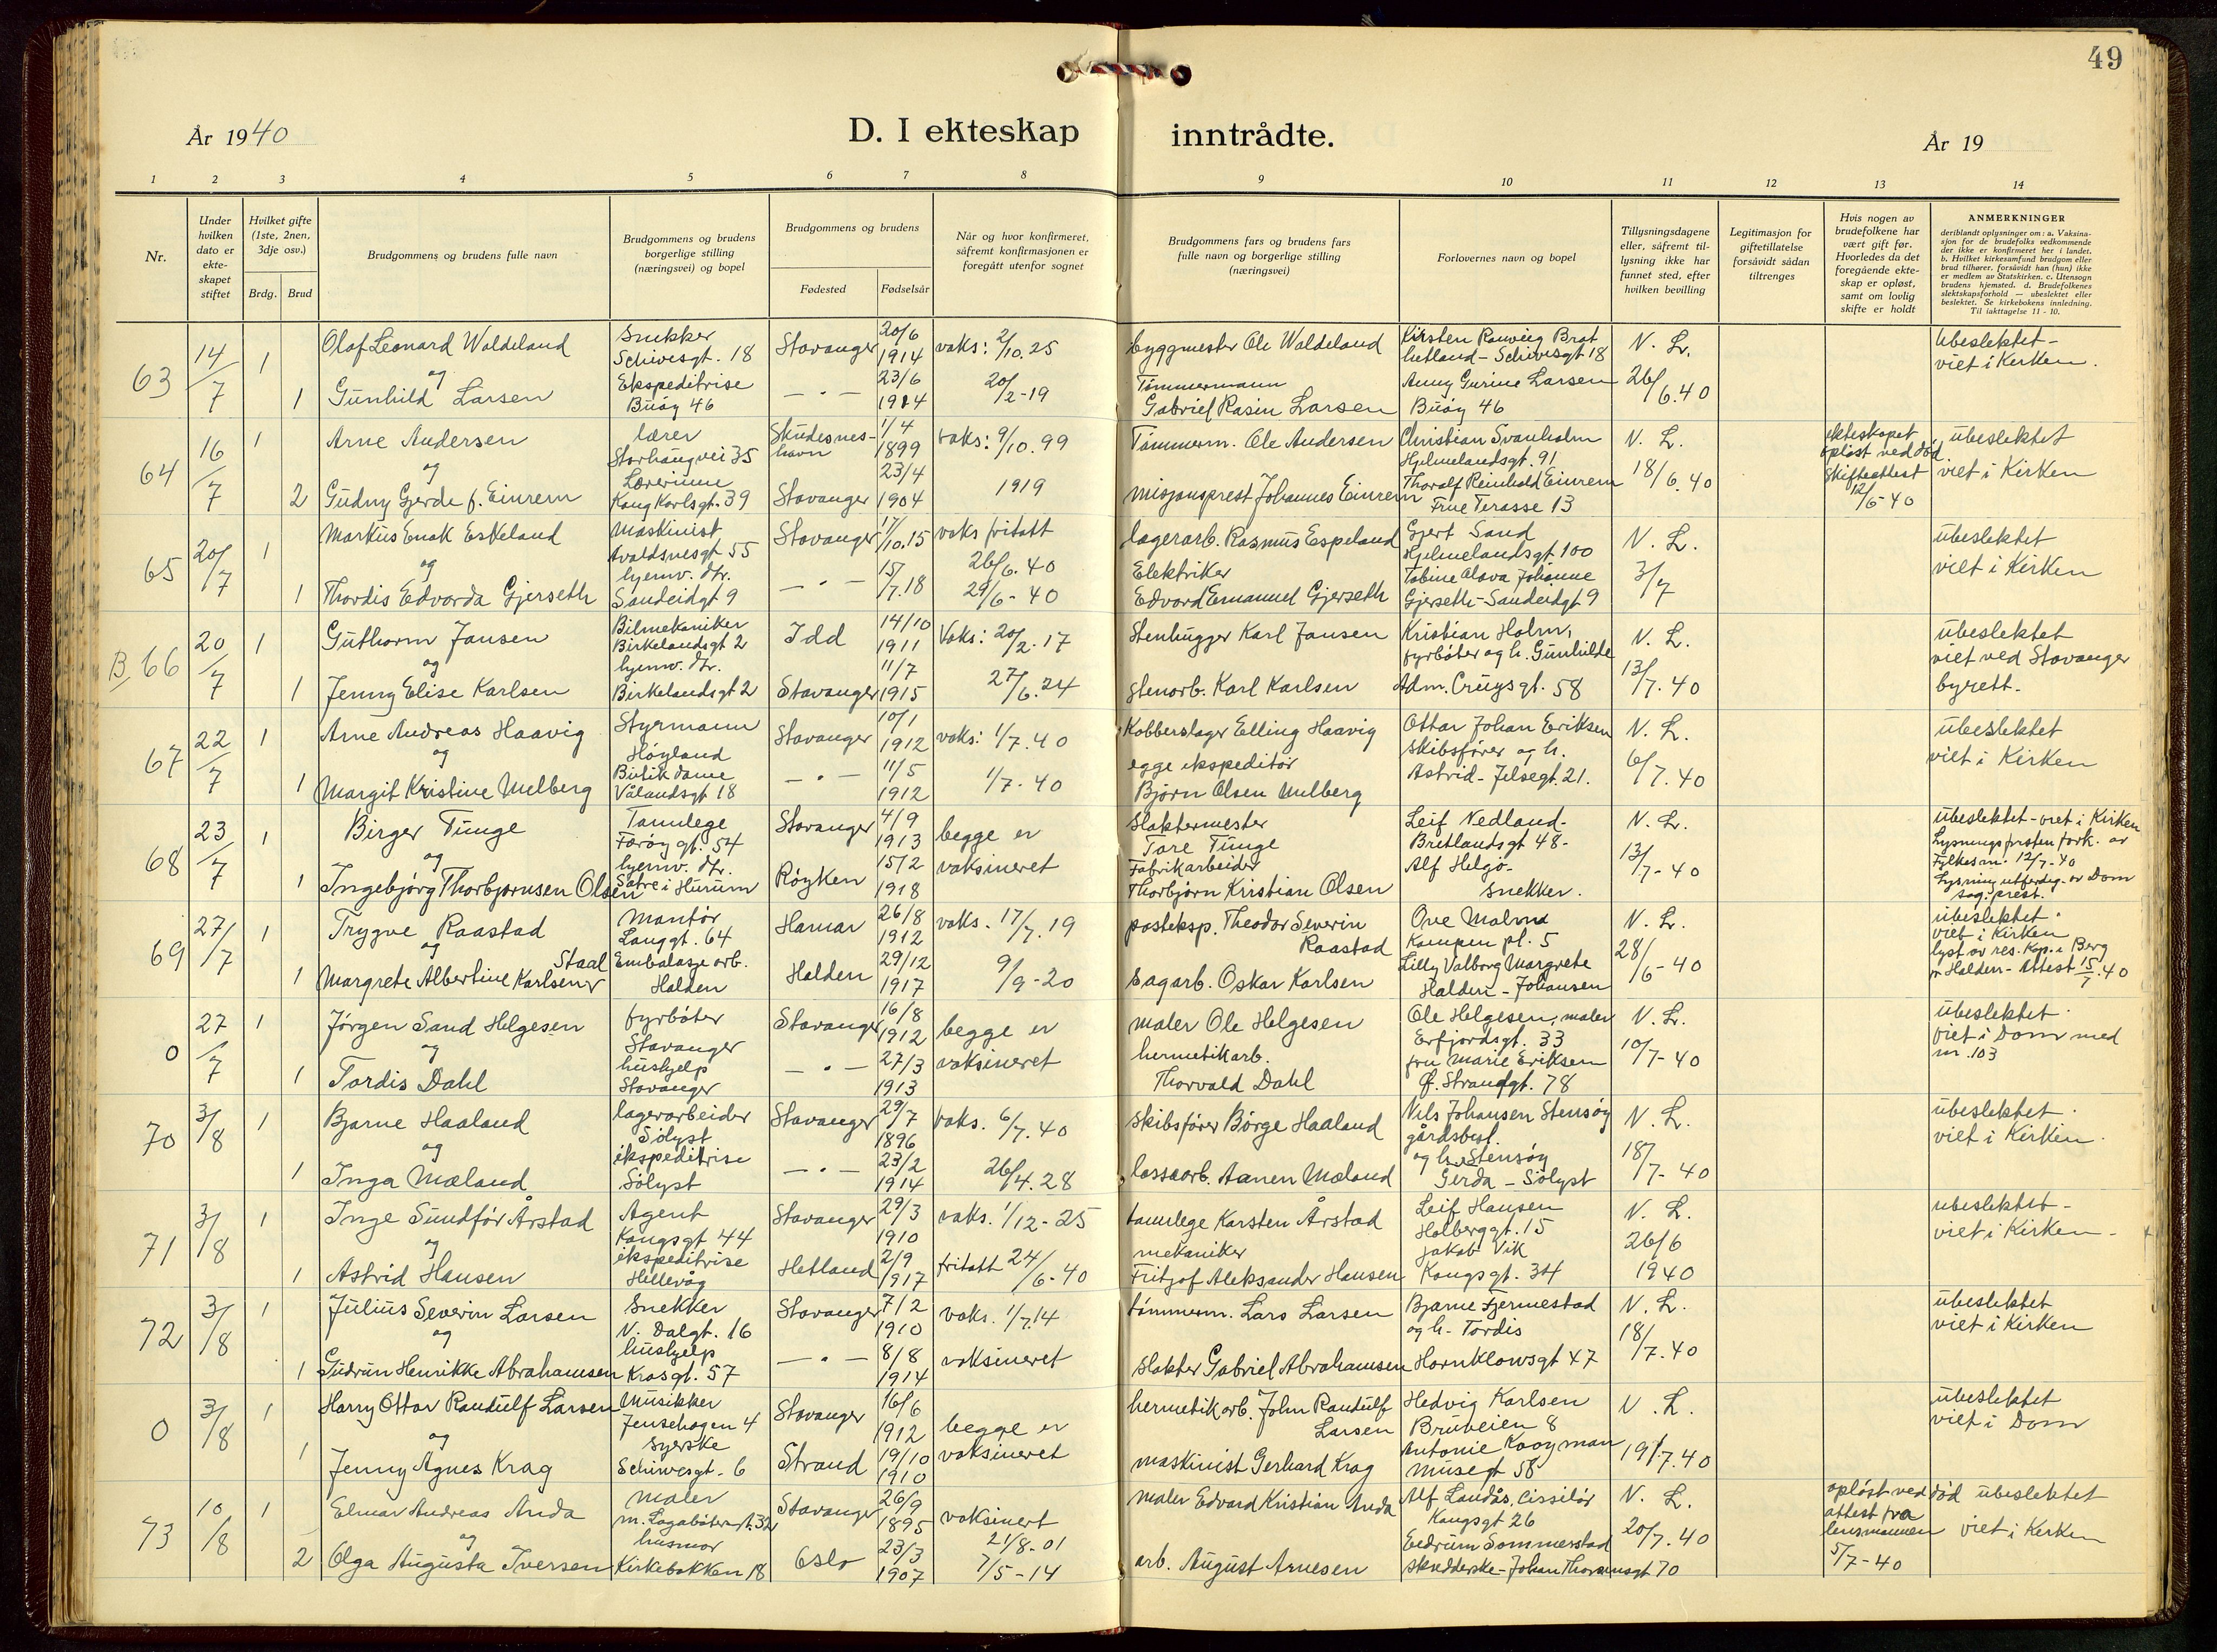 49
År 1940
D. I ekteskap inntrådte.
År 19
1 2 3 4 5 6 7 8 9 10 11 12 13 14
Nr.
Under hvilken dato er ekteskapet stiftet
Hvilket gifte (1ste, 2nen, 3dje osv.)
Brdg. Brud
Brudgommens og brudens fulle navn
Brudgommens og brudens borgerlige stilling (næringsvei) og bopel
Brudgommens og brudens
Fødested
Fødselsår
Når og hvor konfirmeret, såfremt konfirmasjonen er foregått utenfor sognet
Brudgommens fars og brudens fars fulle navn og borgerlige stilling (næringsvei)
Forlovernes navn og bopel
Tillysningsdagene eller, såfremt tillysning ikke har funnet sted, efter hvilken bevilling
Legitimasjon for giftetillatelse forsåvidt sådan tiltrenges
Hvis nogen av brudefolkene har vært gift før. Hvorledes da det foregående ekteskap er opløst, samt om lovlig skifte er holdt
ANMERKNINGER
deriblandt oplysninger om: a. Vaksinasjon for de brudefolks vedkommende der ikke er konfirmeret her i landet. b. Hvilket kirkesamfund brudgom eller brud tilhører, forsåvidt han (hun) ikke er medlem av Statskirken. c. Utensogn brudens hjemsted. d. Brudefolkenes slektskapsforhold — ubeslektet eller beslektet. Se kirkebokens innledning. Til iakttagelse 11 - 10.
63 14/7 1 Olaf Leonard Waldeland Snekker Schivesgt. 18 Stavanger 20/6 1914 vaks: 2/10.25 byggmester Ole Waldeland Kirsten Rauveig Brathetland - Schivesgt 18 N. L. ubeslektet - viet i Kirken.
og
1 Gunhild Larsen Ekspeditrise Buøy 46 — " — 23/6 1914 20/2-19 Tømmermann Gabriel Rasin Larsen Anny Gurine Larsen Buøy 46 26/6.40
64 16/7 1 Arne Andersen lærer Storhaugvei 35 Skudesneshavn 1/4 1899 vaks: 9/10.99 Tømmerm. Ole Andersen Christian Svanholm Hjelmelandsgt. 91 N. L. ekteskapet opløst ved død Skifteattest 12/6-40 ubeslektet viet i Kirken
og
2 Gudny Gjerde f. Einrem Lærerinne Kong Karlsgt. 39 Stavanger 23/4 1904 1919 misjonsprest Johannes Einrem Thoralf Reinhold Einrem Frue Terasse 13 18/6.40
65 20/7 1 Markus Enok Eskeland maskinist Avaldsnesgt 55 Stavanger 17/10.15 vaks fritatt 26/6.40 lagerarb. Rasmus Espeland Gjert Sand Hjelmelandsgt 100 N. L. ubeslektet viet i Kirken
og
1 Thordis Edvarda Gjerseth hjemv. dtr. Sandeidgt 9 — " — 15/7.18 29/6-40 Elektriker Edvard Emanuel Gjerseth Tobine Olava Johanne Gjerseth - Sandeidgt 9 3/7
B. 66 20/7 1 Guthorm Jansen Bilmekaniker Birkelandsgt 2 Idd 14/10 1911 Vaks: 20/2.17 Stenhugger Karl Jansen Kristian Holm, fyrbøter og h. Gunhilde N. L. ubeslektet viet ved Stavanger byrett.
og
1 Jenny Elise Karlsen hjemv. dtr. Birkelandsgt 2 Stavanger 11/7 1915 27/6.24 stenarb. Karl Karlsen Adm. Cruysgt. 58 13/7.40
67 22/7 1 Arne Andreas Haavig Styrmann Høyland Stavanger 10/1 1912 vaks: 1/7.40 Kobberslager Elling Haavig Ottar Johan Eriksen skibsfører og h. N. L. ubeslektet viet i Kirken
og
1 Margit Kristine Melberg Butikdame Vålandsgt 18 — " — 11/5 1912 1/7.40 egge ekspeditør Bjørn Olsen Melberg Astrid - Jelsegt. 21. 6/7.40
68 23/7 1 Birger Tunge Tannlege Færøygt. 54 Stavanger 4/9 1913 begge er slaktermester Tore Tunge Leif Nedland - Bretlandsgt 48- N. L. ubeslektet - viet i Kirken Lysningsfristen fork. av Fylkesm. 12/7-40
og
1 Ingebjørg Thorbjørnsen Olsen hjemv. dtr. Sætre i Hurum Røyken 15/2 1918 vaksineret Fabrikarbeider Thorbjørn Kristian Olsen Alf Helgø - snekker. 13/7-40 Lysning utferdig. av Dom sog. prest.
69 27/7 1 Trygve Raastad Montør Langgt. 64 Hamar 26/8 1912 vaks. 17/7.19 posteksp. Theodor Severin Raastad Ove Malmo Kampen pl. 5 N. L. ubeslektet. viet i Kirken
og
1 Margrete Albertine Karlsen Staal Embalasje arb. Halden Halden 29/12 1917 9/9-20 sagarb. Oskar Karlsen Lilly Valborg Margrete Halden - Johansen 28/6-40 lyst av res. Kap. i Berg pr Halden - Attest 15/7.40
0 27/7 1 Jørgen Sand Helgesen fyrbøter Stavanger Stavanger 16/8 1912 begge er maler Ole Helgesen Ole Helgesen, maler Erfjordsgt. 33 N. L. ubeslektet. viet i Dom med nr. 103
og
1 Tordis Dahl hushjelp Stavanger — " — 27/3 1913 vaksineret hermetikarb. Thorvald Dahl fru Marie Eriksen Ø. Strandgt. 78 10/7-40
70 3/8 1 Bjarne Haaland lagerarbeider Sølyst Stavanger 29/7 1896 vaks. 6/7.40 skibsfører Børge Haaland Nils Johansen Stensøy gårdsbest. N. L. ubeslektet. viet i Kirken.
og
1 Inga Mæland ekspeditrise Sølyst — " — 23/2 1914 26/4.28 lossearb. Aanen Mæland og h. Stensøy Gerda - Sølyst 18/7-40
71 3/8 1 Inge Sundfør Årstad Agent Kongsgt 44 Stavanger 29/3 1910 vaks. 1/12-25 tannlege Karsten Årstad Leif Hansen Holberggt. 15 N. L. ubeslektet - viet i Kirken -
og
1 Astrid Hansen ekspeditrise Hillevåg Hetland 2/9 1917 fritatt 24/6-40 mekaniker Fritjof Aleksander Hansen Jakob Vik Kongsgt. 34 26/6 1940
72 3/8 1 Julius Severin Larsen Snekker N. Dalgt. 16 Stavanger 7/2 1910 vaks. 1/7.14 tømmerm. Lars Larsen Bjarne Fjermestad og h. Tordis N. L. ubeslektet viet i Kirken
og
1 Gudrun Henrikke Abrahamsen hushjelp Krosgt. 57 — " — 8/8 1914 vaksineret slakter Gabriel Abrahamsen Hornklowsgt 47 18/7.40
0 3/8 1 Harry Ottar Randulf Larsen Musikker Jensehagen 4 Stavanger 16/6 1912 begge er hermetikarb. John Randulf Larsen Hedvig Karlsen Bruveien 8 N. L. ubeslektet viet i Dom
og
1 Jenny Agnes Krag syerske Schiwesgt. 6 Strand 19/10 1910 vaksineret maskinist Gerhard Krag Antonie Kooyman Musegt 58 19/7.40
73 10/8 1 Elmar Andreas Anda maler m. Lagabøtersgt. 32 Stavanger 26/9 1895 vaksinert 21/8-01 maler Edvard Kristian Anda Alf Landås, cisselør Kongsgt 26 N. L. opløst ved død attest fra lensmannen 5/7-40 ubeslektet viet i Kirken
og
2 Olga Augusta Iversen husmor Kirkebakken 18 Oslo 23/3 1907 7/5-14 arb. August Arnesen Eedrum Sommerstad skredderske - Johan Thorsensgt 70 20/7.40